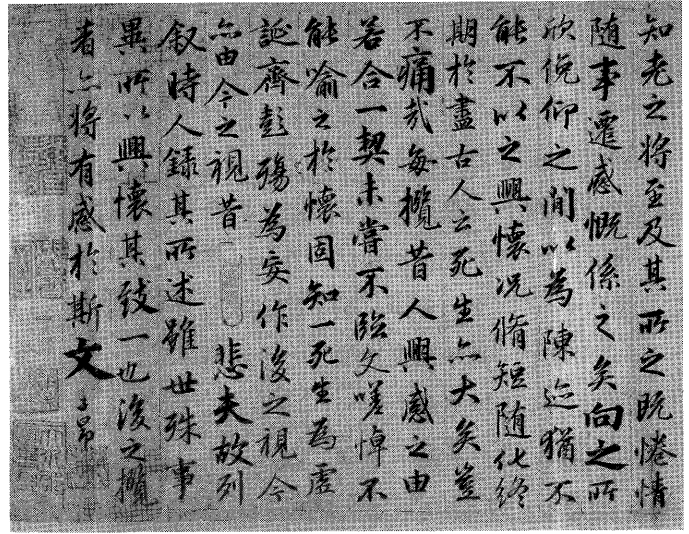 知老之將至及其所之既惓情
隨事遷感慨係之矣向之所
欣俛仰之間以為陳迹猶不
能不以之興懷況脩短隨化終
期於盡古人云死生亦大矣豈
不痛哉每攬昔人興感之由
若合一契未嘗不臨文嗟悼不
能喻之於懷固知一死生為虛
誕齊彭殤為妄作後之視今
亦由今之視昔悲夫故列
叙時人錄其所述雖世殊事
異所以興懷其致一也後之攬
者亦將有感於斯文子昂